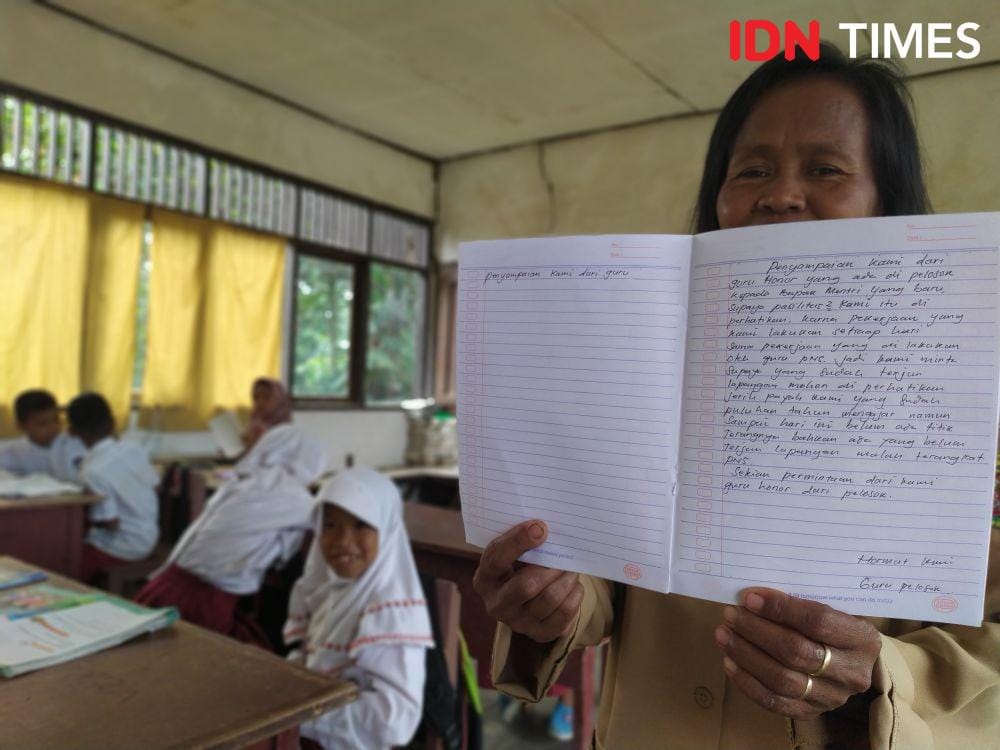 IDN TIMES
Penyampaian kami dari guru
Penyampaian kami dari
guru Honor yang ada di pelosok
kepada Bapak Mentri yang baru,
supaya pasilitas2 kami itu di
perhatikan, karna pekerjaan yang
kami lakukan setiap hari
sama pekerjaan yang di lakukan
oleh guru PNS. Jadi kami minta
supaya yang sudah terjun
lapangan mohon di perhatikan
jerih payah kami yang sudah
puluhan tahun mengajar namun
sampai hari ini belum ada titik
terangnya bahkan ada yang belum
terjun lapangan malah terangkat
PNS.
Sekian permintaan dari kami
guru honor dari pelosok.
Hormat kami
Guru pelosok.